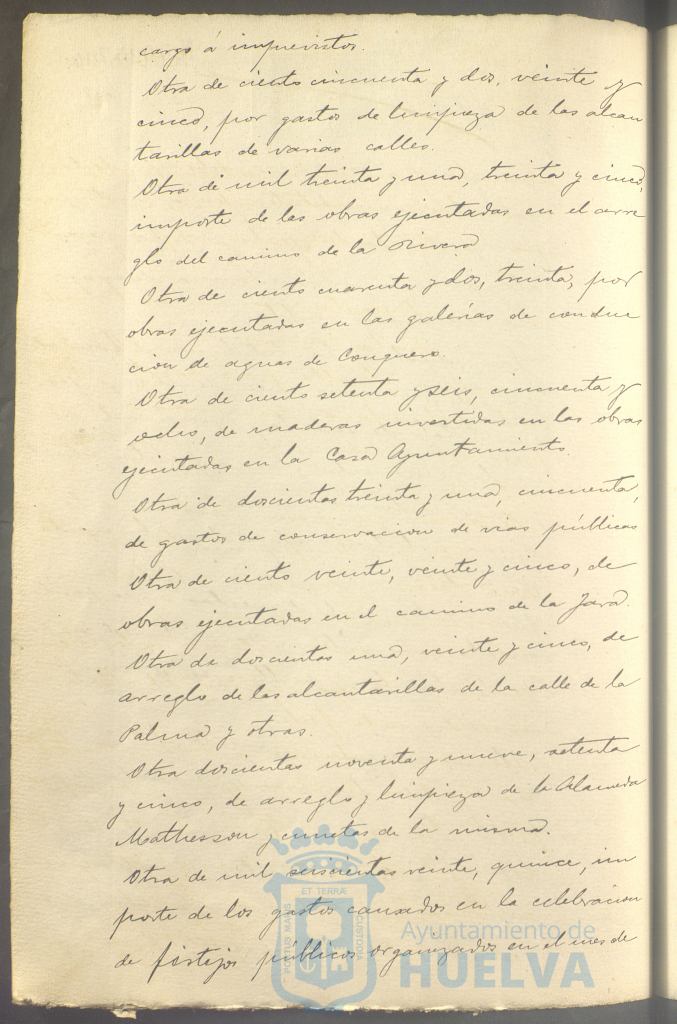 cargo á imprevistos.
Otra de ciento cincuenta y dos, veinte y
cinco, por gastos de limpieza de las alcan
tarillas de varias calles.
Otra de mil treinta y una, treinta y cinco,
importe de las obras ejecutadas en el arre
glo del camino de la Rivera
Otra de ciento cuarenta y dos, treinta, por
obras ejecutadas en las galerías de conduc
cion de aguas de Conquero.
Otra de ciento setenta y seis, cincuenta y
ocho, de maderas invertidas en las obras
ejecutadas en la Casa Ayuntamiento.
Otra de doscientas treinta y una, cincuenta,
de gastos de conservacion de vias públicas
Otra de ciento veinte, veinte y cinco, de
obras ejecutadas en el camino de la Jara.
Otra de doscientas una, veinte y cinco, de
arreglo de las alcantarillas de la calle de la
Palma y otras.
Otra doscientas noventa y nueve, setenta
y cinco, de arreglo y limpieza de la Alameda
Mathesson y cunetas de la misma.
Otra de mil seiscientas veinte, quince, im
porte de los gastos causados en la celebracion
de festejos públicos organizados en el mes de
PORTUS MARIS ET TERRÆ CUSTODIA
Ayuntamiento de
HUELVA